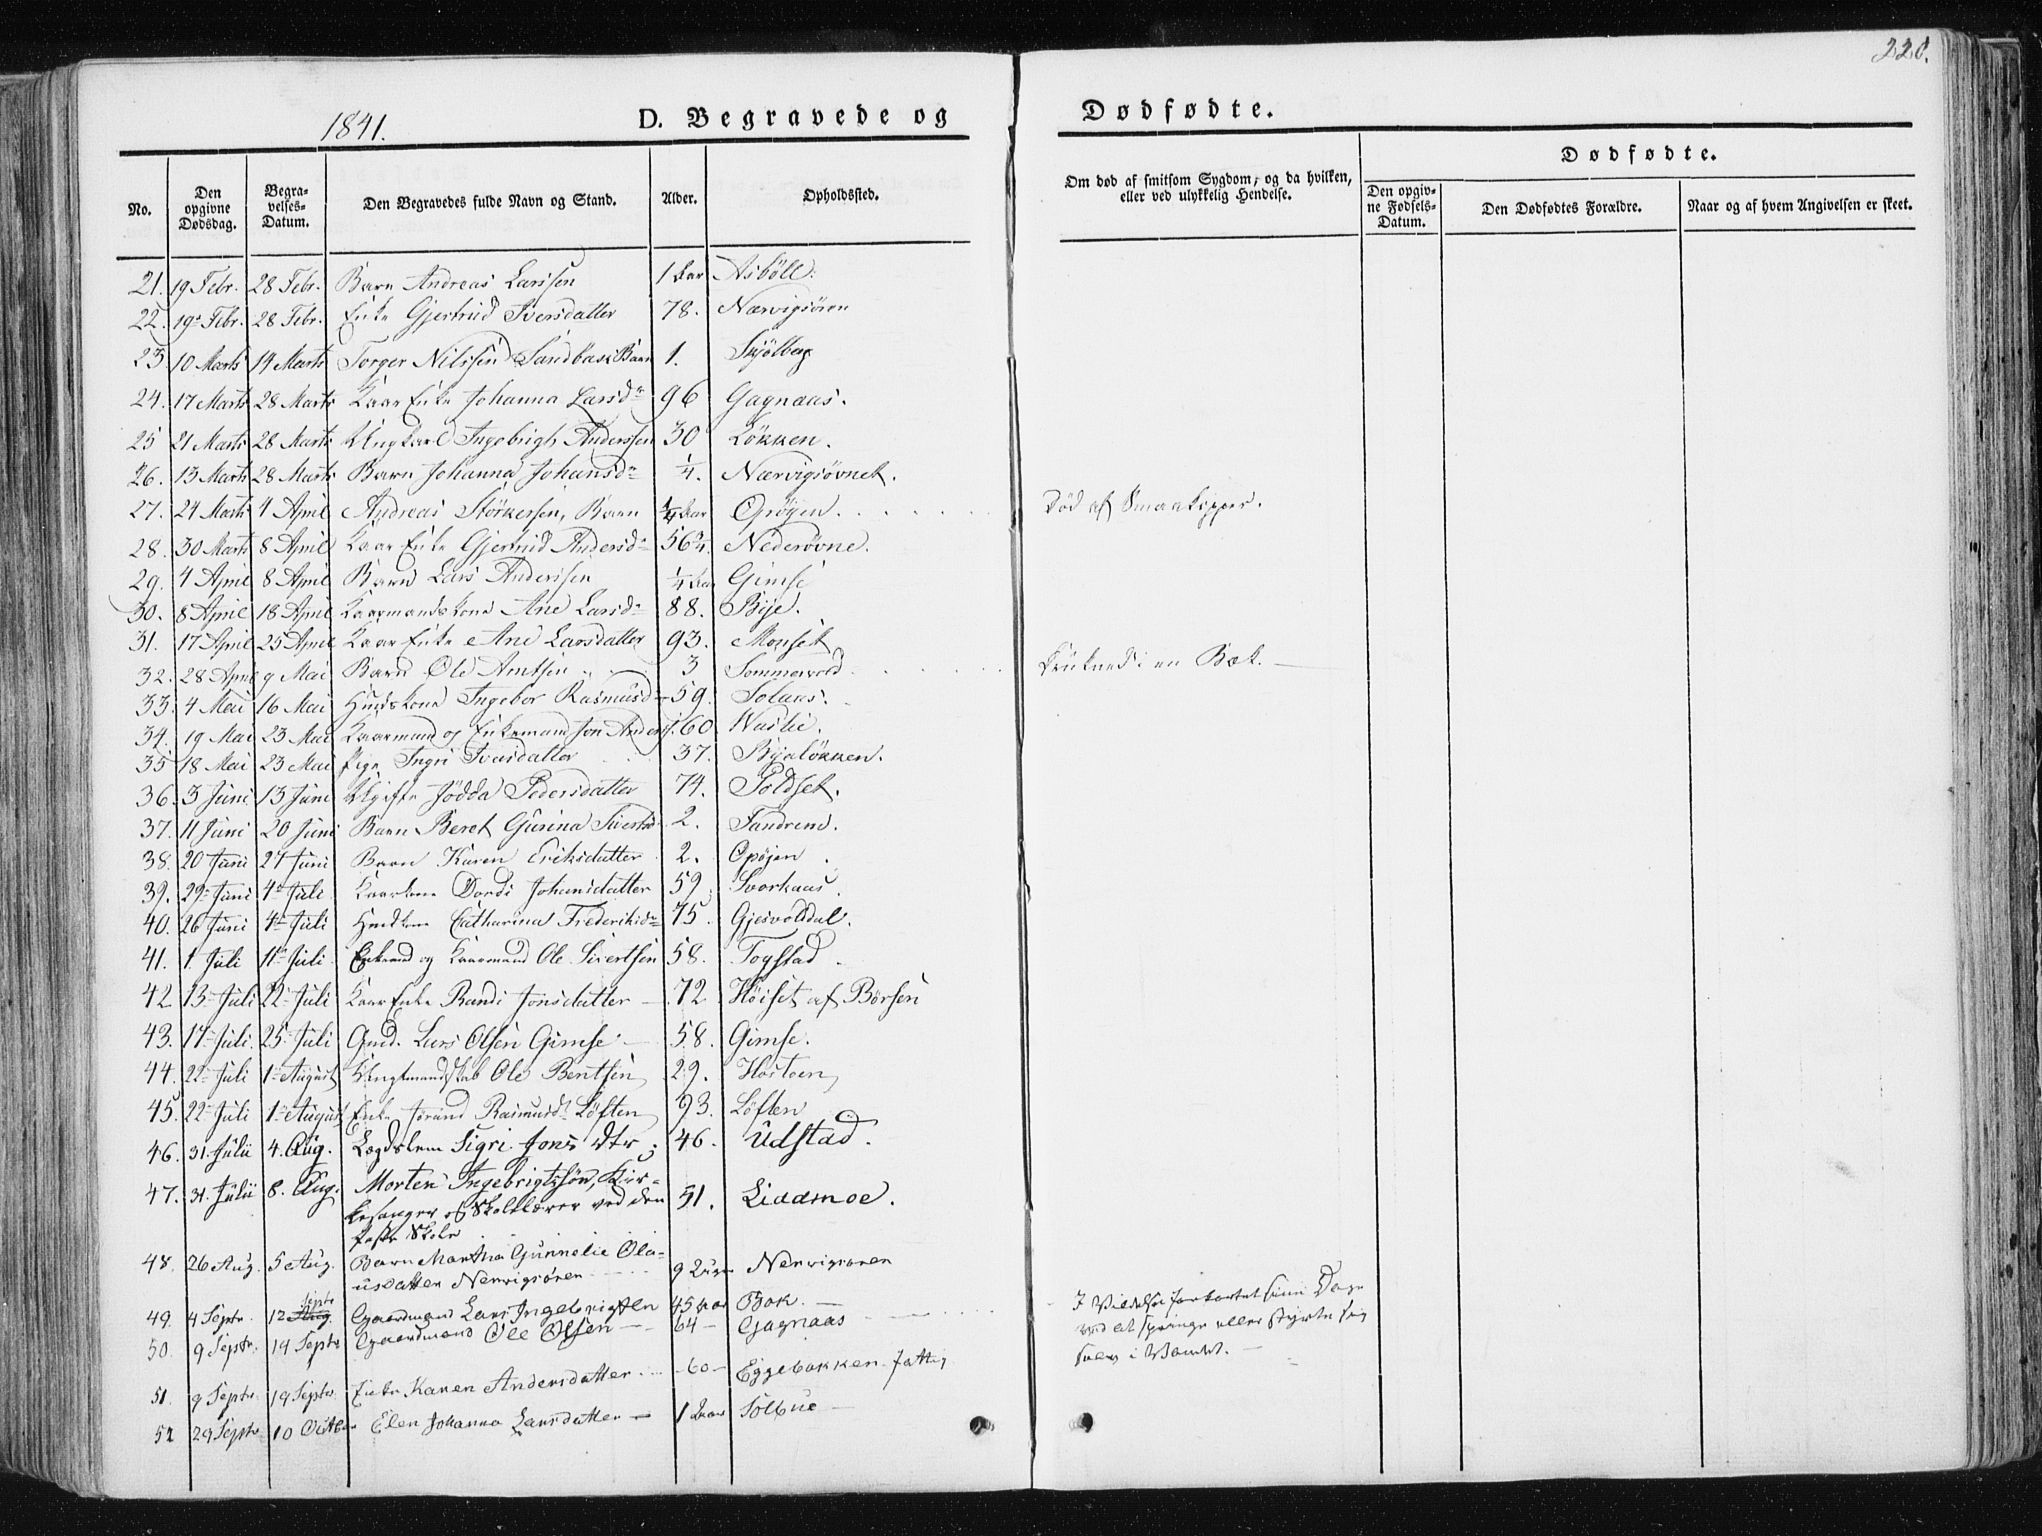 220.
1841.
D. Begravede og Dødfødte.
No.
Den opgivne Dødsdag.
Begravelses-Datum.
Den Begravedes fulde Navn og Stand.
Alder.
Opholdssted.
Om død af smitsom Sygdom, og da hvilken, eller ved ulykkelig Hendelse.
Dødfødte.
Den opgivne Fødsels-Datum.
Den Dødfødtes Forældre.
Naar og af hvem Angivelsen er skeet.
21. 19 Febr. 28 Febr. Barn Andreas Larssen 1 Aar Asböll.
22. 19. Febr. 28 Febr. Enke Gjertrud Iversdatter 78. Nærvigsören
23. 10 Marts 14 Marts Torger Nilssen Sandbas Barn 1. Skjölberg
24. 17 Marts 28 Marts Kaar Enke Johanna Larsdr 96 Gagnaas.
25 21 Marts 28 Marts Ungkarl Ingebrigt Anderssen 30 Lökken.
26. 13 Marts 28 Marts Barn Johanna Johansdr 1/4. Nærvigsövnet.
27. 24 Marts 4 April Andreas Störkersen, Barn 1/4 Aar Opöyen. Död af Smaakopper.
28. 30 Marts 8 April Kaar Enke Gjertrud Andersdr 56 Nederövne.
29. 4 April 8 April Barn Lars Anderssen 1/4 Aar Gimse
30. 8 April 18 April Kaarmandskone Ane Larsdr 88. Bye.
31. 17 April 25 April Kaar Enke Ane Larsdatter 93. Monset
32. 28 April 9 Mai Barn Ole Arntsen 3 Sommervold Druknede i en Bæk.
33. 4 Mai 16 Mai Huuskone Ingebor Rasmusd 59. Solaas.
34. 19 Mai 23 Mai Kaarmand og Enkemand Jon Anders. 60
35 18 Mai 23 Mai Pige Ingri Iversdatter 37. Byelökken.
36. 3 Juni 13 Juni Ugifte Jödda Pedersdatter 74. Poldset.
37. 11 Juni 20 Juni Barn Beret Gurina Sivertsd 2. Tandrem.
38. 20 Juni 27 Juni Barn Karen Eriksdatter 2. Opöjen.
39. 29 Juni 4 Juli Kaarkone Dordi Johansdatter 59. Svorkaas.
40. 26 Juni 4 Juli Huskone Catharina Frederiksdr 75. Gjesvolddal.
41. 1 Juli 11 Juli Enkemd og Kaarmand Ole Sivertsen 58. Fogstad
42 13 Juli 22 Juli Kaar Enke Randi Jonsdatter 72 Höiset af Börsen
43. 17 Juli 25 Juli Gmd. Lars Olsen Gimse 58. Gimse.
44. 22 Juli 1 August Ungmandskab Ole Bentsen 29. Hostoen
45. 22 Juli 1 August Enke Jörand Rasmusdr Löften 93. Löften
46. 31. Julii 4. Aug. Lægdslem Sigri Jons dtr. 46. Udstad.
47. 31. Julii 8. Aug. Morten Ingebrigtssön, Kir-
kesanger og Skolelærer ved den
faste Skole 51. Lidamoe.
48. 26 Aug. 5 Aug. Barn Martha Gunnelie Ola-
usdatter Nervigsören 9 Uger Nervigsøren
49. 4 Septr. 12 Septr Gaardmand Lars Ingebrigtsen 45 Aar Bok. I Vildelse forkortet sine Dage
50. 9 Septr. 19 Septr Gaardmand Ole Olsen 64 Gagnaas ved at springe eller styrte sig
selv i Vandet.
51. 9 Septr. 19 Septr. Enke Karen Andersdatter 60 Eggebakken. fattig
52 29 Septr 10 Octbr Elen Johanna Larsdatter 1 Aar Solbue